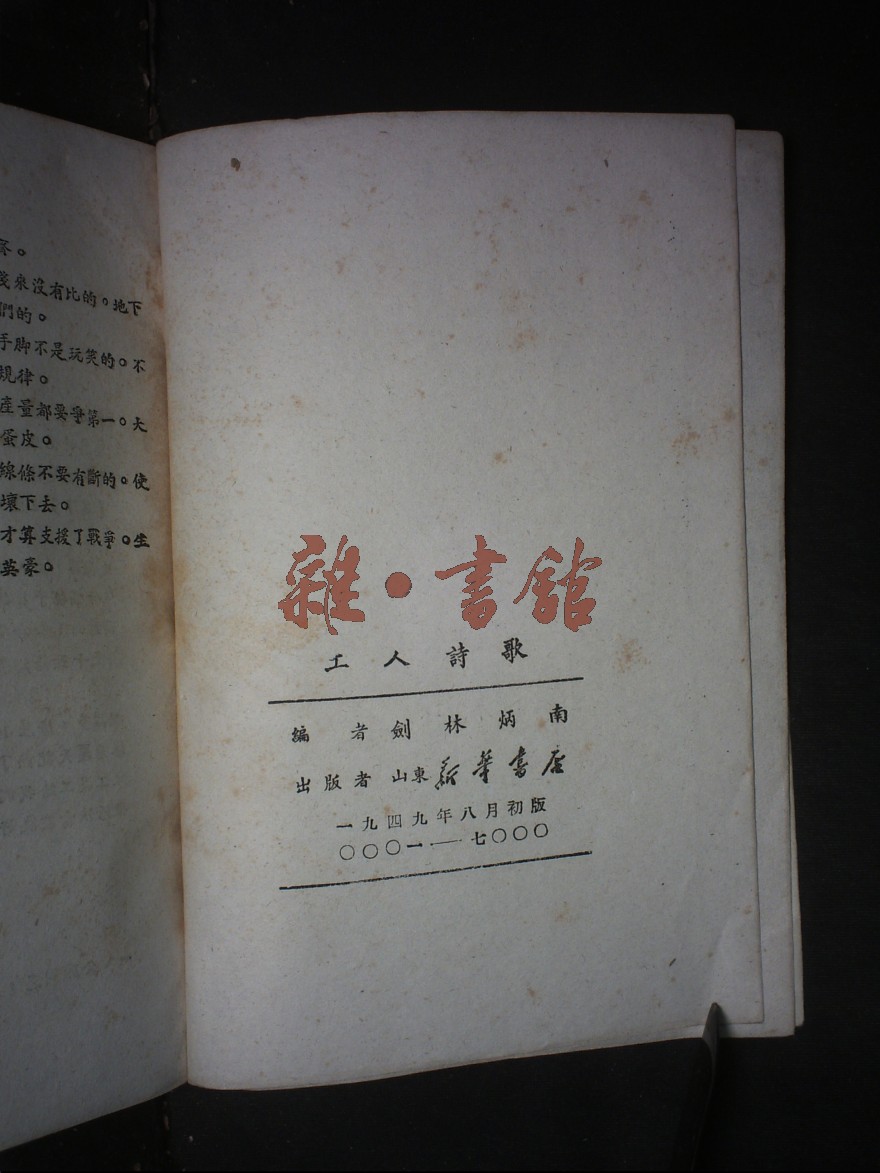 來沒有比的。地下
們的。
手脚不是玩笑的。不
規律。
產量都要爭第一。大
蛋皮。
線條不要有斷的。使
壞下去。
才算支援了戰爭。生
英豪。
雜·書館
工人詩歌
編者劍林炳南
出版者山東新華書店
一九四九年八月初版
〇〇〇一——七〇〇〇